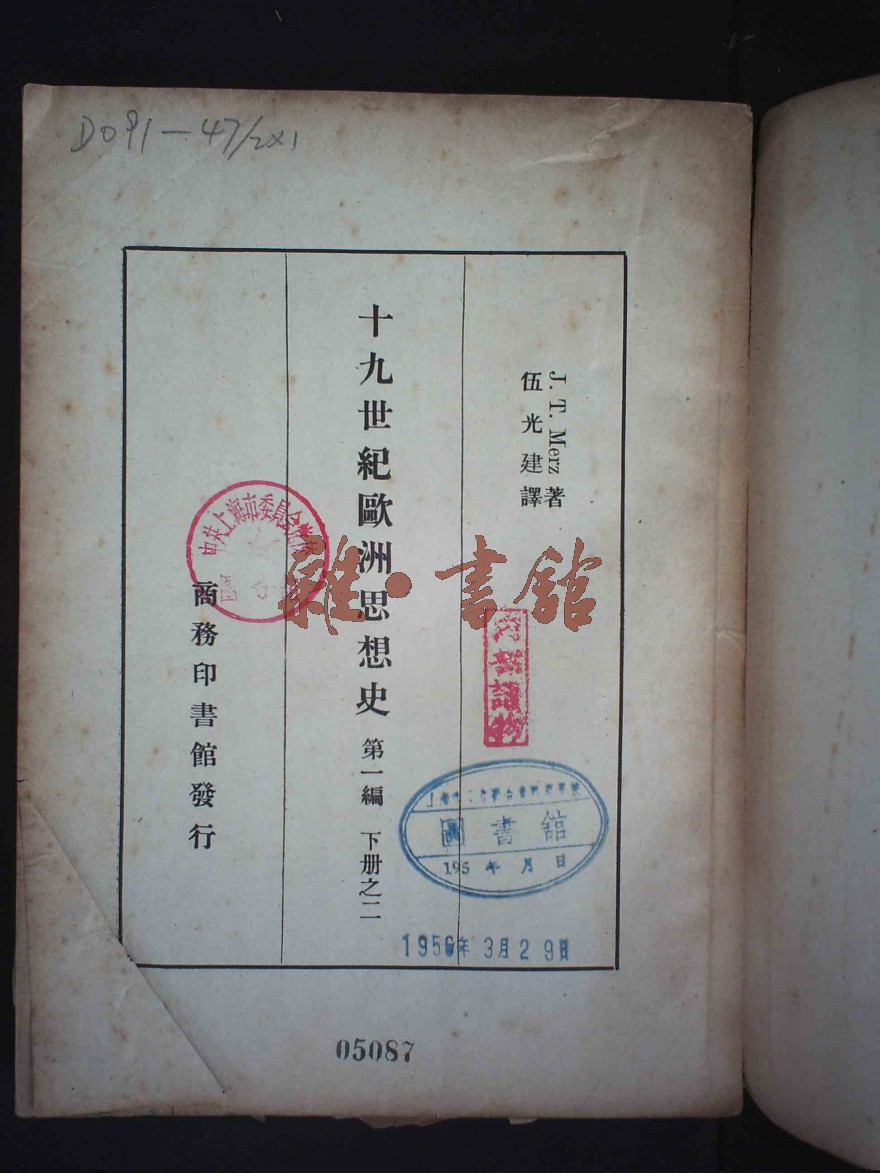 D091-47/2X1
J. T. Merz 著
伍光建譯
十九世紀歐洲思想史 第一編 下册之二
商務印書館發行
中共上海市委員會
雜·書館
內部讀物
圖書館
195 年 月 日
1956年3月29日
05087